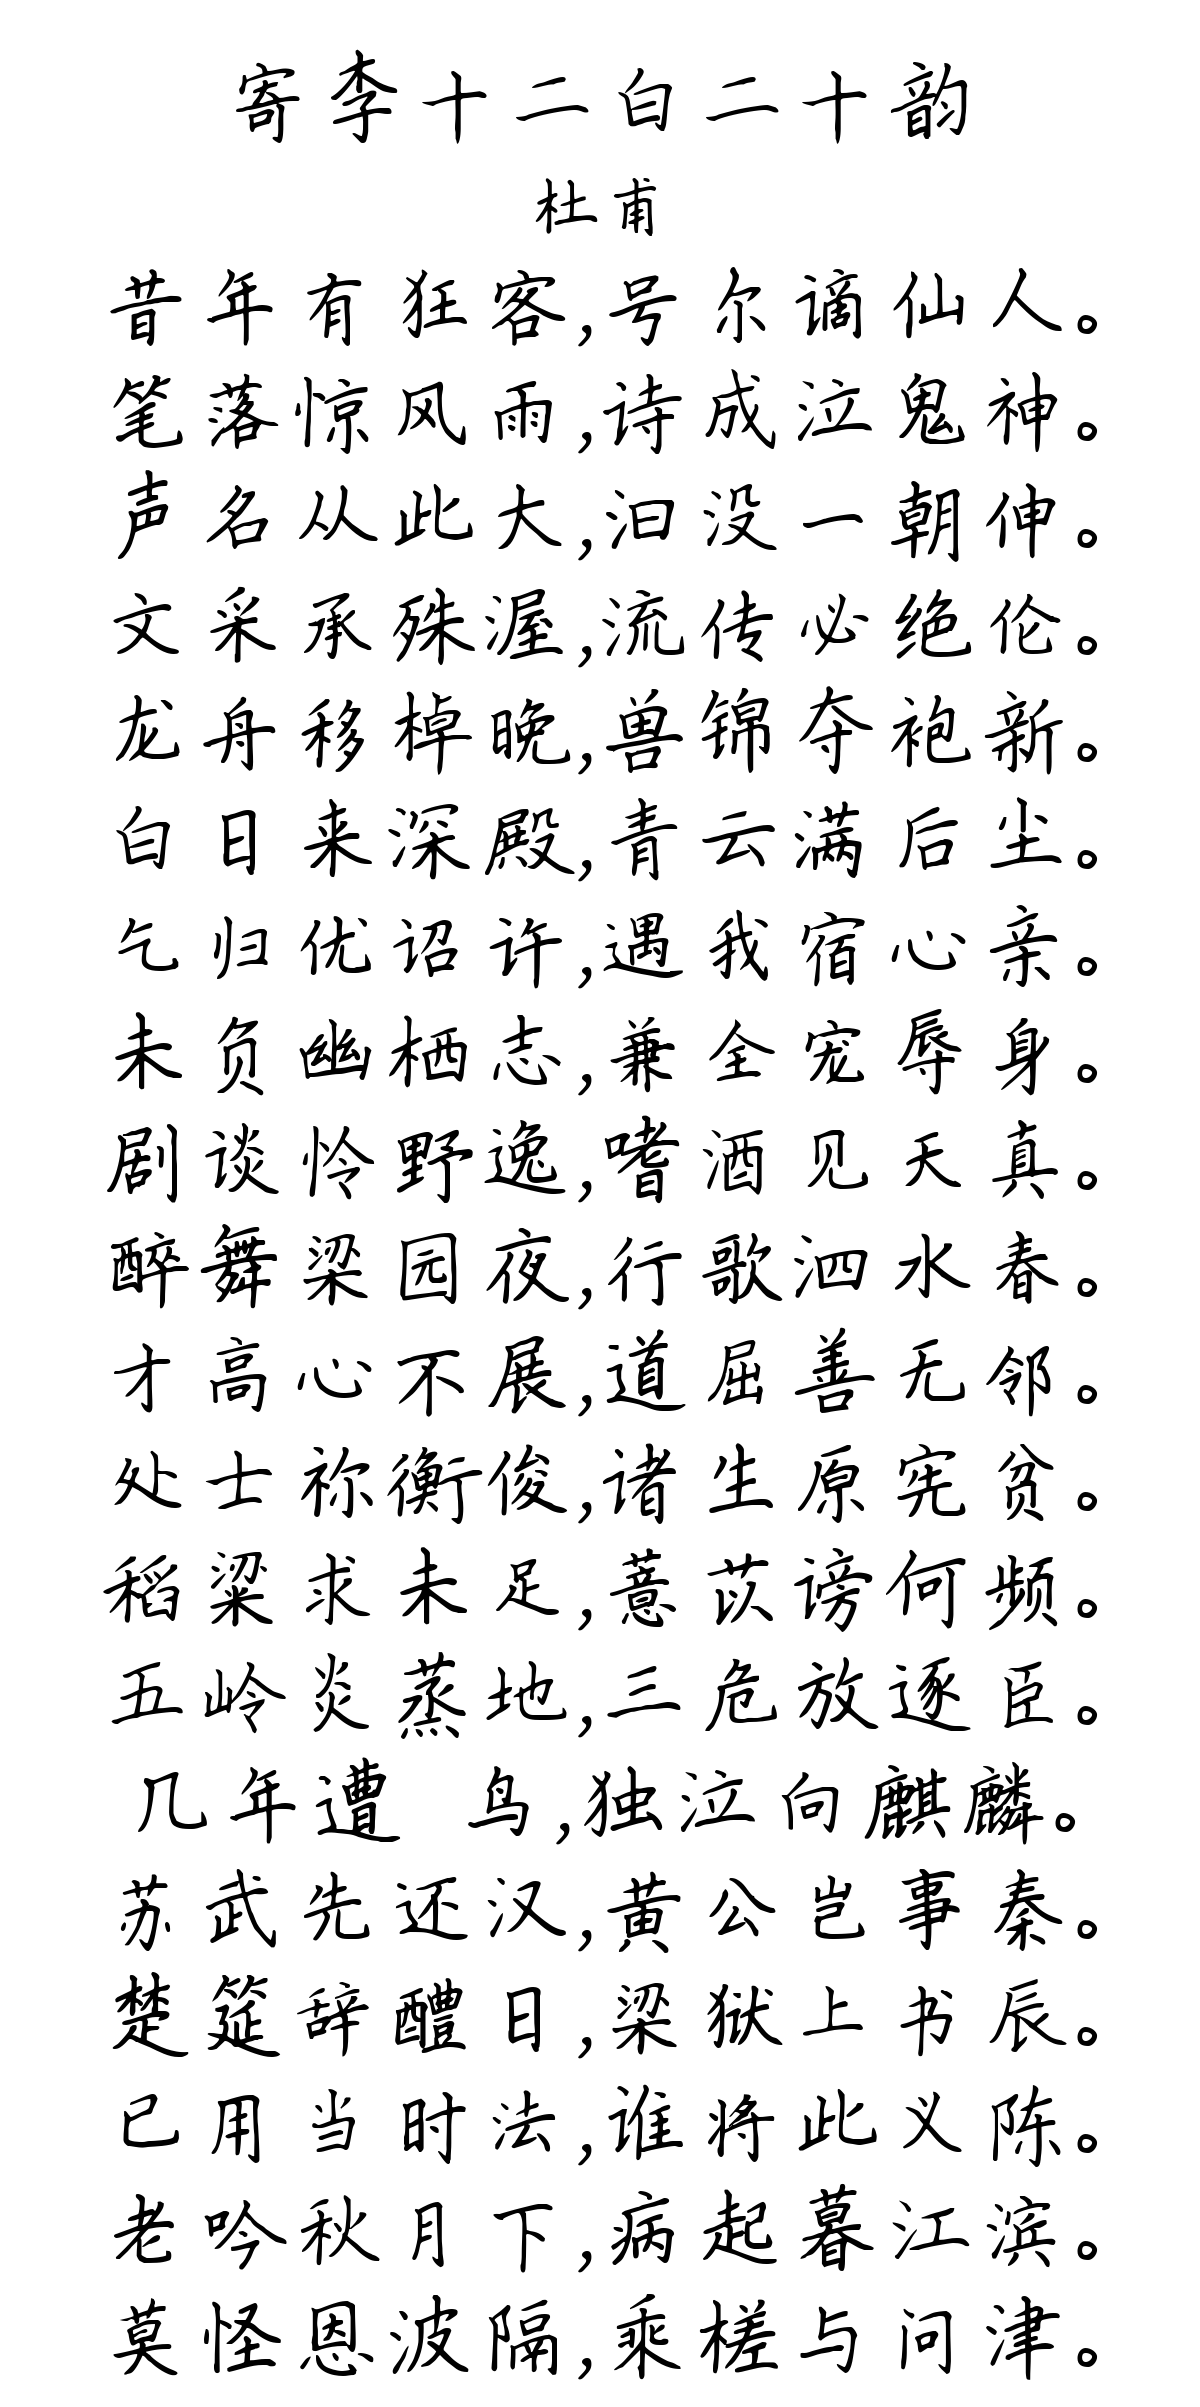 寄李十二白二十韵
杜甫
昔年有狂客,号尔谪仙人。
笔落惊风雨,诗成泣鬼神。
声名从此大,汩没一朝伸。
文采承殊渥,流传必绝伦。
龙舟移棹晚,兽锦夺袍新。
白日来深殿,青云满后尘。
乞归优诏许,遇我宿心亲。
未负幽栖志,兼全宠辱身。
剧谈怜野逸,嗜酒见天真。
醉舞梁园夜,行歌泗水春。
才高心不展,道屈善无邻。
处士祢衡俊,诸生原宪贫。
稻粱求未足,薏苡谤何频。
五岭炎蒸地,三危放逐臣。
几年遭 鸟,独泣向麒麟。
苏武先还汉,黄公岂事秦。
楚筵辞醴日,梁狱上书辰。
已用当时法,谁将此义陈。
老吟秋月下,病起暮江滨。
莫怪恩波隔,乘槎与问津。